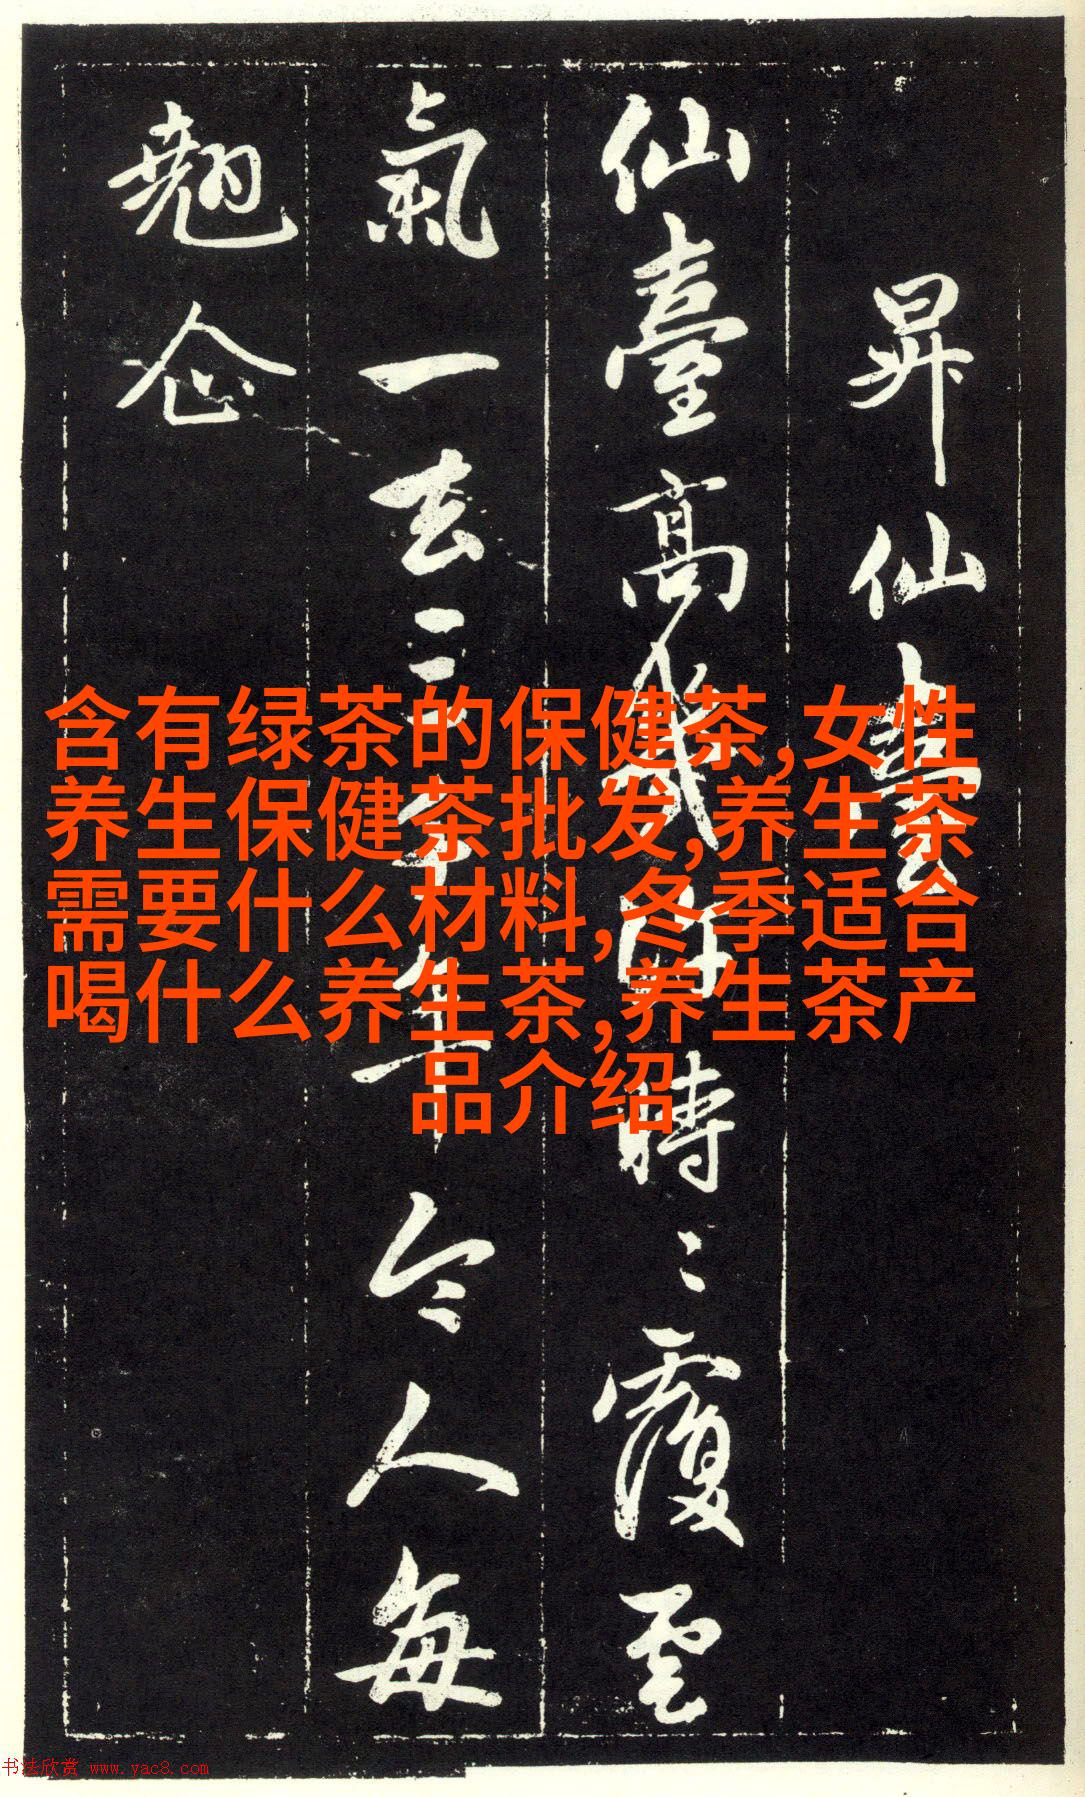 昇仙臺
仙臺高幾許時〻覆雲
氣一去三千年今人每
翹企
含有绿茶的保健茶,女性
养生保健茶批发,养生茶
需要什么材料,冬季适合
喝什么养生茶,养生茶产
品介绍
书法欣赏 www.yac8.com